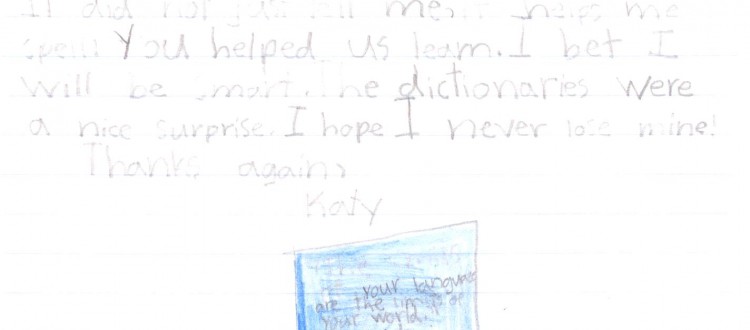 It did not just tell me, it helps me
spell! You helped us learn. I bet I
will be smart. The dictionaries were
a nice surprise. I hope I never lose mine!
Thanks again,
Katy
your language
are the limits of
your world.